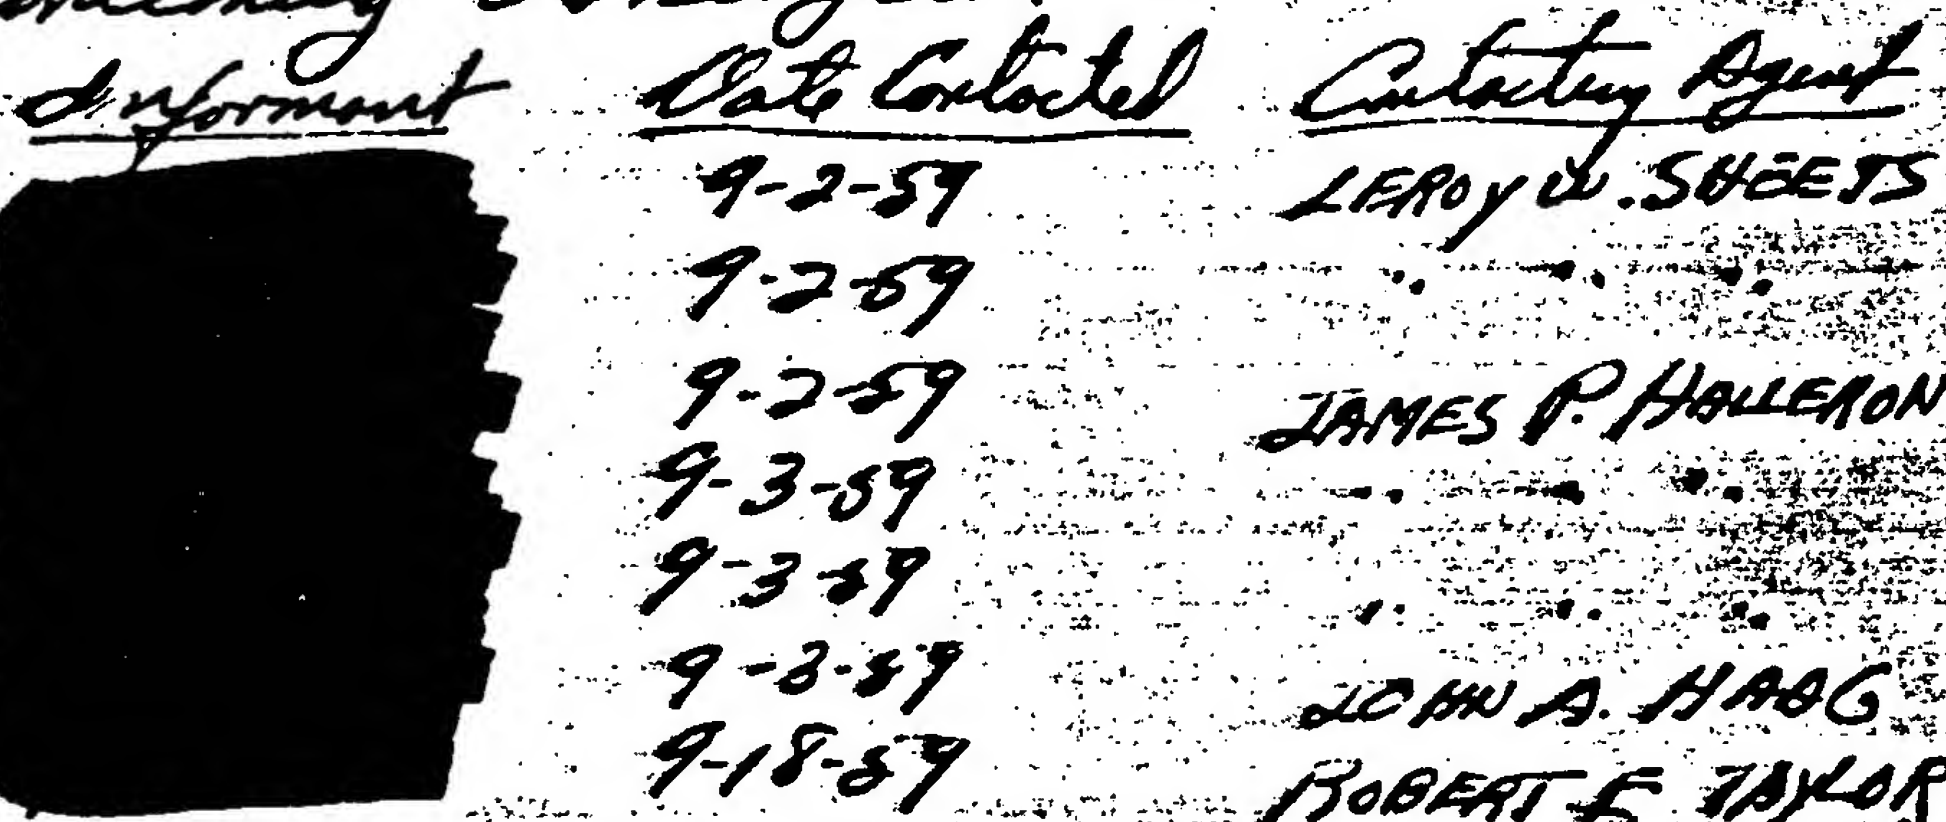 Informant Date Contacted Contacting Agent
9-2-59 LEROY W. SHEETS
9-2-59 " " "
9-2-59 JAMES P. HALLERON
9-3-59 " " "
9-3-59 " " "
9-3-59 JOHN A. HAAG
9-18-59 ROBERT E. TAYLOR